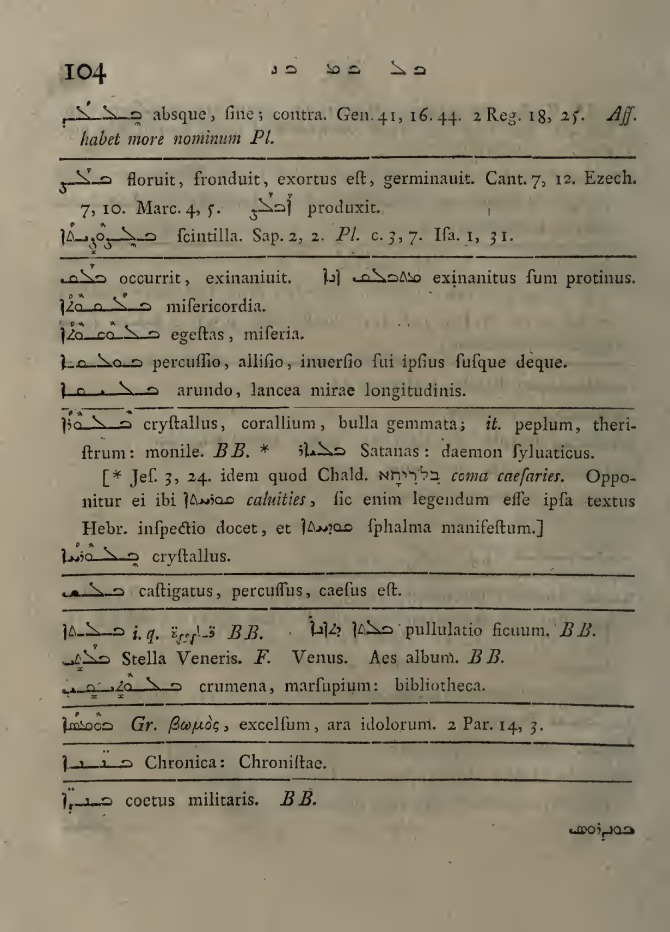 104 ܒܠ ܒܡ ܒܢ
ܒܠܥܕ absque, ſine; contra. Gen. 41, 16. 44. 2 Reg. 18, 25. Aff.
habet more nominum Pl.
ܒܠܨ floruit, fronduit, exortus eſt, germinauit. Cant. 7, 12. Ezech.
7, 10. Marc. 4, 5. ܐܒܠܨ produxit.
ܒܠܨܘܨܝܬܐ ſcintilla. Sap. 2, 2. Pl. c. 3, 7. Iſa. 1, 31.
ܒܠܩ occurrit, exinaniuit. ܐܢܐ exinanitus ſum protinus.
miſericordia.
egeſtas, miſeria.
percuſſio, alliſio, inuerſio ſui ipſius ſuſque deque.
arundo, lancea mirae longitudinis.
cryſtallus, corallium, bulla gemmata; it. peplum, theri-
ſtrum: monile. BB. * Satanas: daemon ſyluaticus.
[* Jeſ. 3, 24. idem quod Chald. בלריתא coma caeſaries. Oppo-
nitur ei ibi ܩܪܘܚܬܐ caluities, ſic enim legendum eſſe ipſa textus
Hebr. inſpectio docet, et ſphalma manifeſtum.]
cryſtallus.
ܒܠܫ caſtigatus, percuſſus, caeſus eſt.
ܒܠܬܐ i. q. BB. ܒܠܬܐ ܕܬܐܢܐ pullulatio ficuum. BB.
ܒܠܬܝ Stella Veneris. F. Venus. Aes album. BB.
crumena, marſupium: bibliotheca.
ܒܘܡܣܐ Gr. βωμὸς, excelſum, ara idolorum. 2 Par. 14, 3.
Chronica: Chroniſtae.
ܒܢܕܐ coetus militaris. BB.